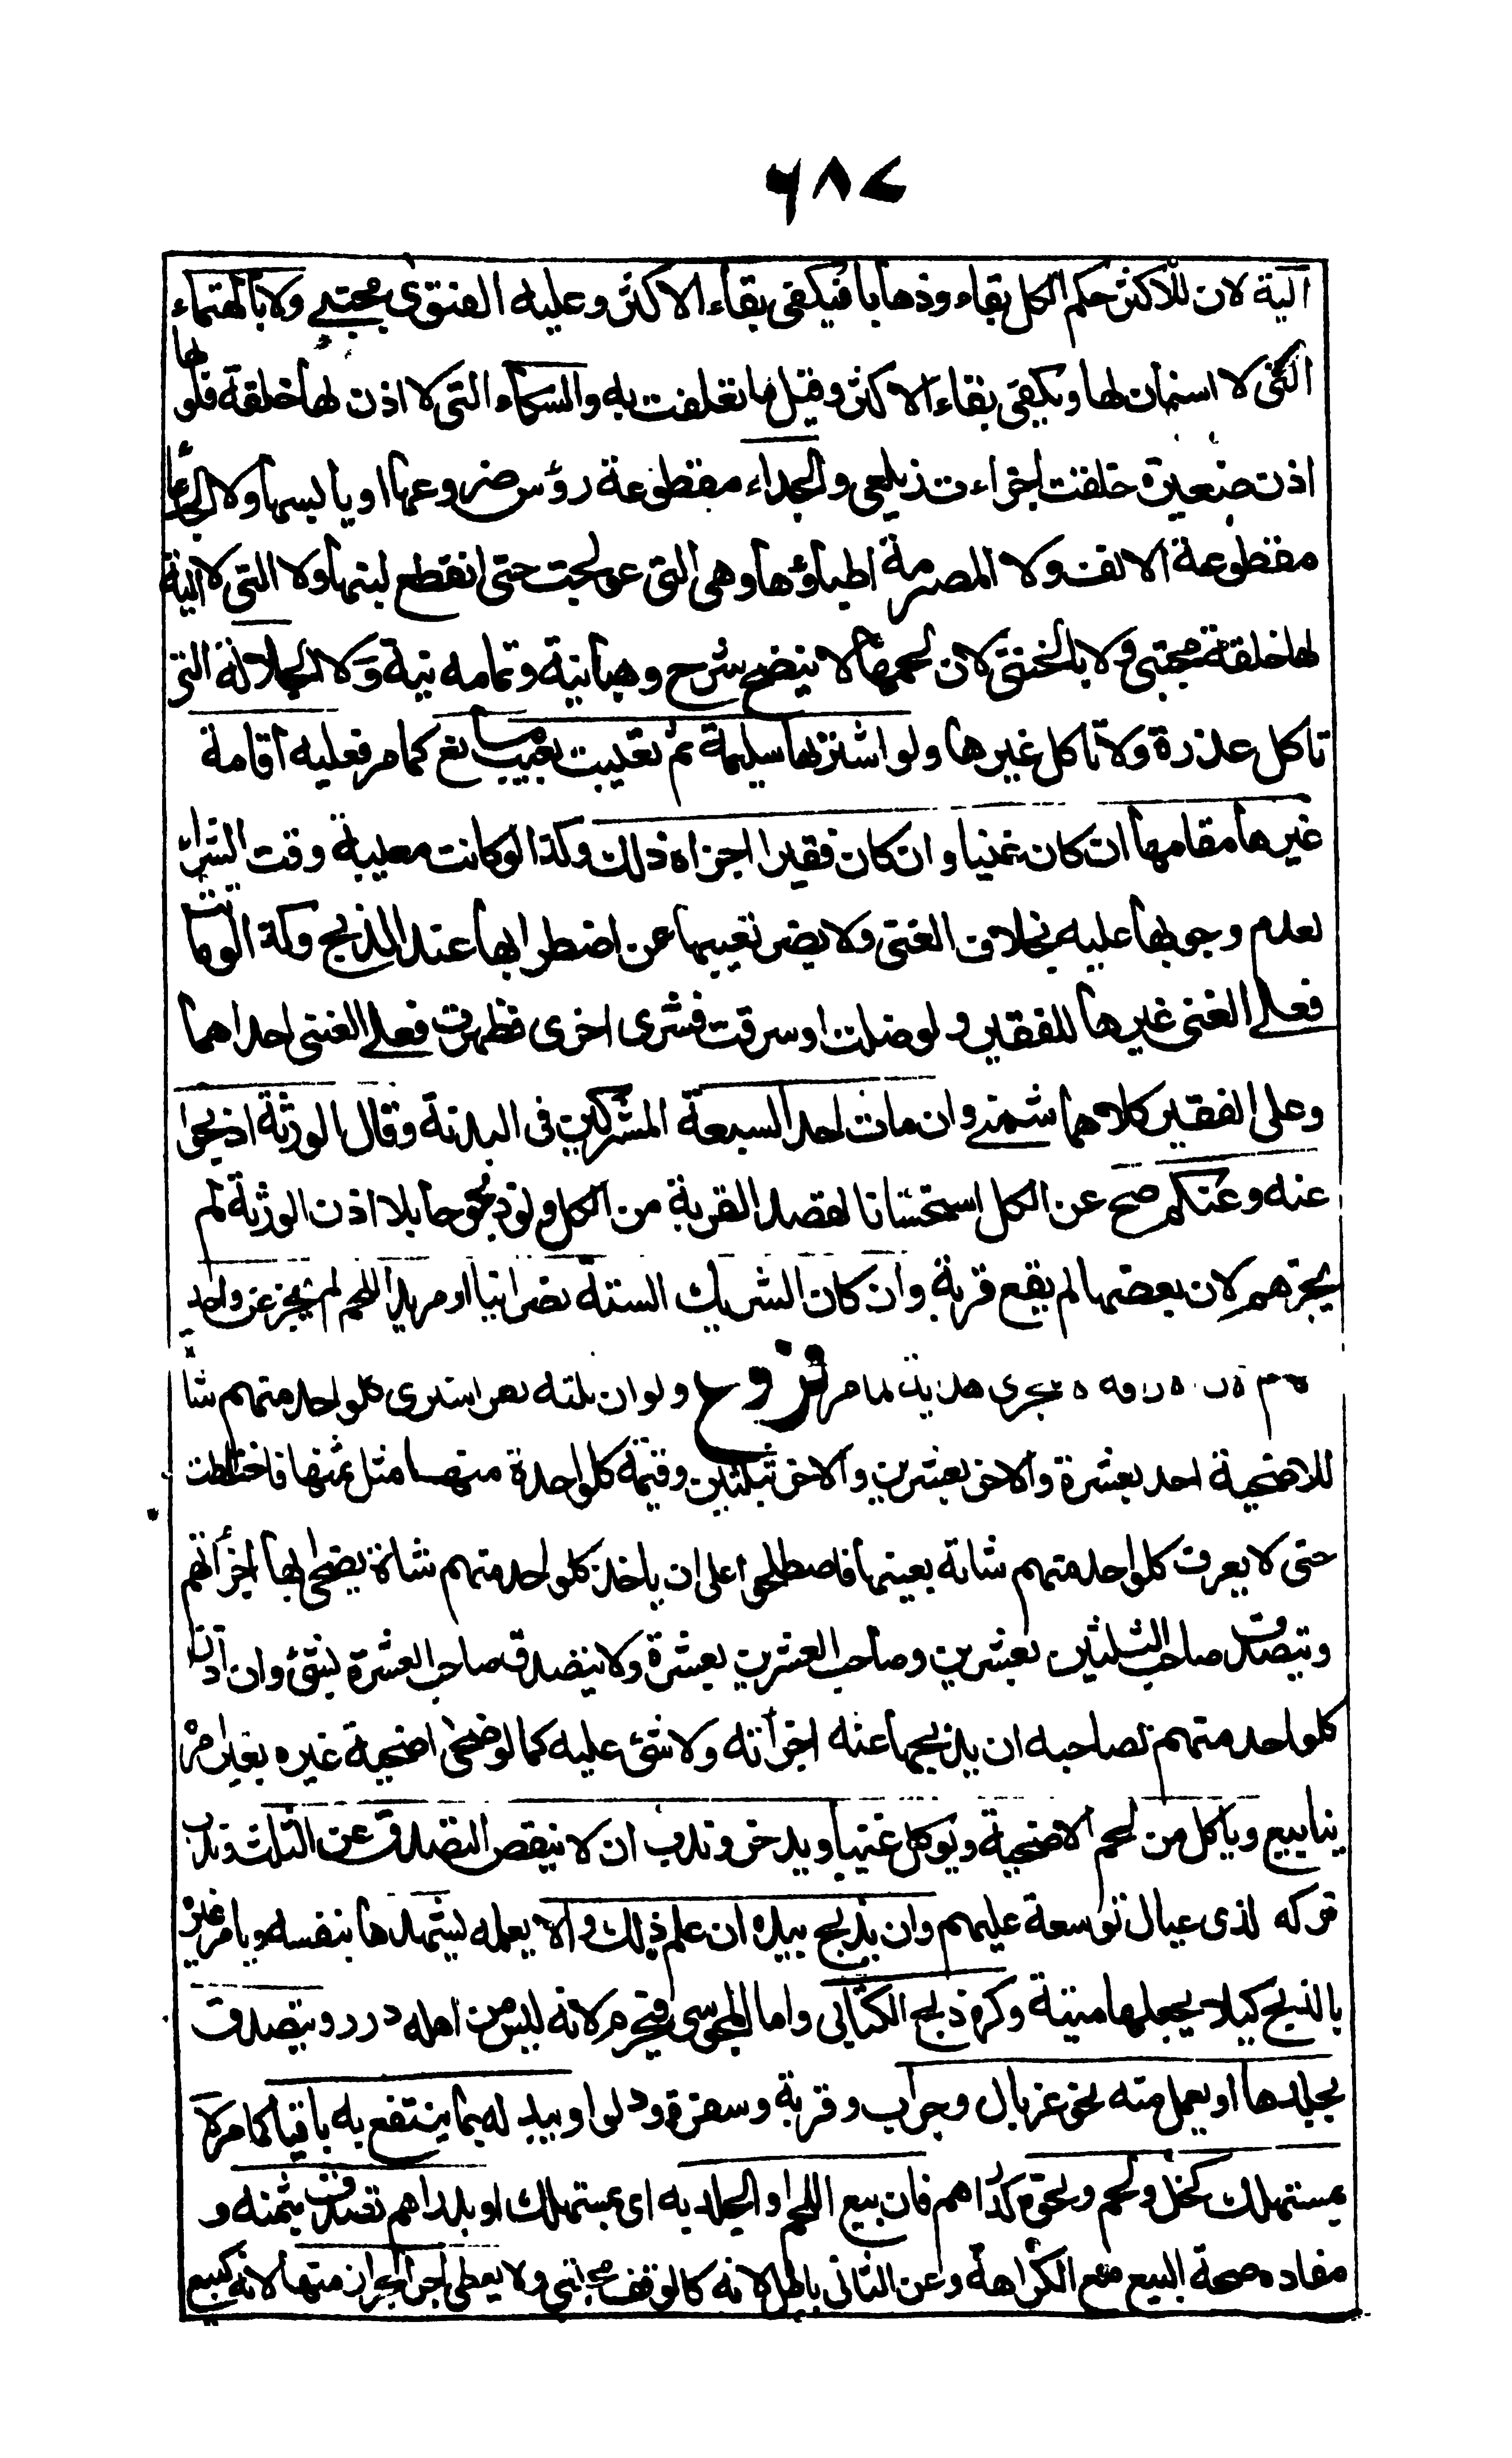 ٦٨٧
آلية لان للاكثر حكم الكل بقاء وذهابا فيكفى بقاء الاكثر وعليه الفتوى مجتبى ولا بالهتماء
التى لا اسنان لها ويكفى بقاء الاكثر وقيل ما تعلفت به والسكاء التى لا اذن لها خلقة فلو لها
اذن صغيرة خلقت اجزاءت زيلعى والجداء مقطوعة رؤس ضروعها او يابسها ولا الجدعا
مقطوعة الانف ولا المصرمة اطباؤها وهى التى عولجت حتى انقطع لبنها ولا التى لا الية
لها خلقة مجتبى ولا بالخنثى لان لحمها لا ينضج شرح وهبانية وتمامه فيه ولا الجلالة التى
تاكل عذرة ولا تاكل غيرها ولو اشتراها سليمة ثم تعيبت بعيب مانع كما مر فعليه اقامة
غيرها مقامها ان كان غنيا وان كان فقيرا اجزاه ذلك وكذا لو كانت معيبة وقت الشراء
لعدم وجوبها عليه بخلاف الغنى ولا يضر تعيبها عن اضطرابها عند الذبح وكذا لو ماتت
فعلى الغنى غيرها للفقير ولو ضلت او سرقت فشرى اخرى فظهرت فعلى الغنى احداهما
وعلى الفقير كلاهما شمنى وان مات احد السبعة المشتركين فى البدنة وقال الورثة اذبحوا
عنه وعنكم صح عن الكل استحسانا لقصد القربة من الكل ولو ذبحوها بلا اذن الورثة لم
يجزهم لان بعضها لم يقع قربة وان كان الشريك الستة نصرانيا او مريدا اللحم لم يجز عن واحد
هداية لما مر فروع ولو ان ثلثة نفر اشترى كلواحد منهم شاة
للاضحية احد بعشرة والاخر بعشرين والاخر بثلثين وقيمة كلواحدة منها مثل ثمنها فاختلطت
حتى لا يعرف كلواحد منهم شاته بعينها فاصطلحوا على ان ياخذ كلواحد منهم شاة يضحى بها اجزأتهم
ويتصدق صاحب الثلثين بعشرين وصاحب العشرين بعشرة ولا يتصدق صاحب العشرة بشئ وان اذن
كلواحد منهم لصاحبه ان يذبحها عنه اجزأته ولا شئ عليه كما لو ضحى اضحية غيره بغير امره
ينابيع وياكل من لحم الاضحية ويوكل غنيا ويدخر وندب ان لا ينقص التصدق عن الثلث وندب
تركه لذى عيال توسعة عليهم وان يذبح بيده ان علم ذلك والا يعلمه ليشهدها بنفسه ويامر غيره
بالذبح كيلا يجعلها ميتة وكره ذبح الكتابى واما المجوسى فيحرم لانه ليس من اهله درر ويتصدق
بجلدها او يعمل منه نحو غربال وجراب وقربة وسفرة ودلو او يبدله بما ينتفع به باقيا كما مر لا
بمستهلك كخل ولحم ونحوه كدراهم فان بيع اللحم او الجلد به اى بمستهلك او بدراهم تصدق بثمنه و
مفاده صحة البيع مع الكراهة وعن الثانى باطل لانه كالوقف مجتبى ولا يعطى اجر الجزار منها لانه كبيع